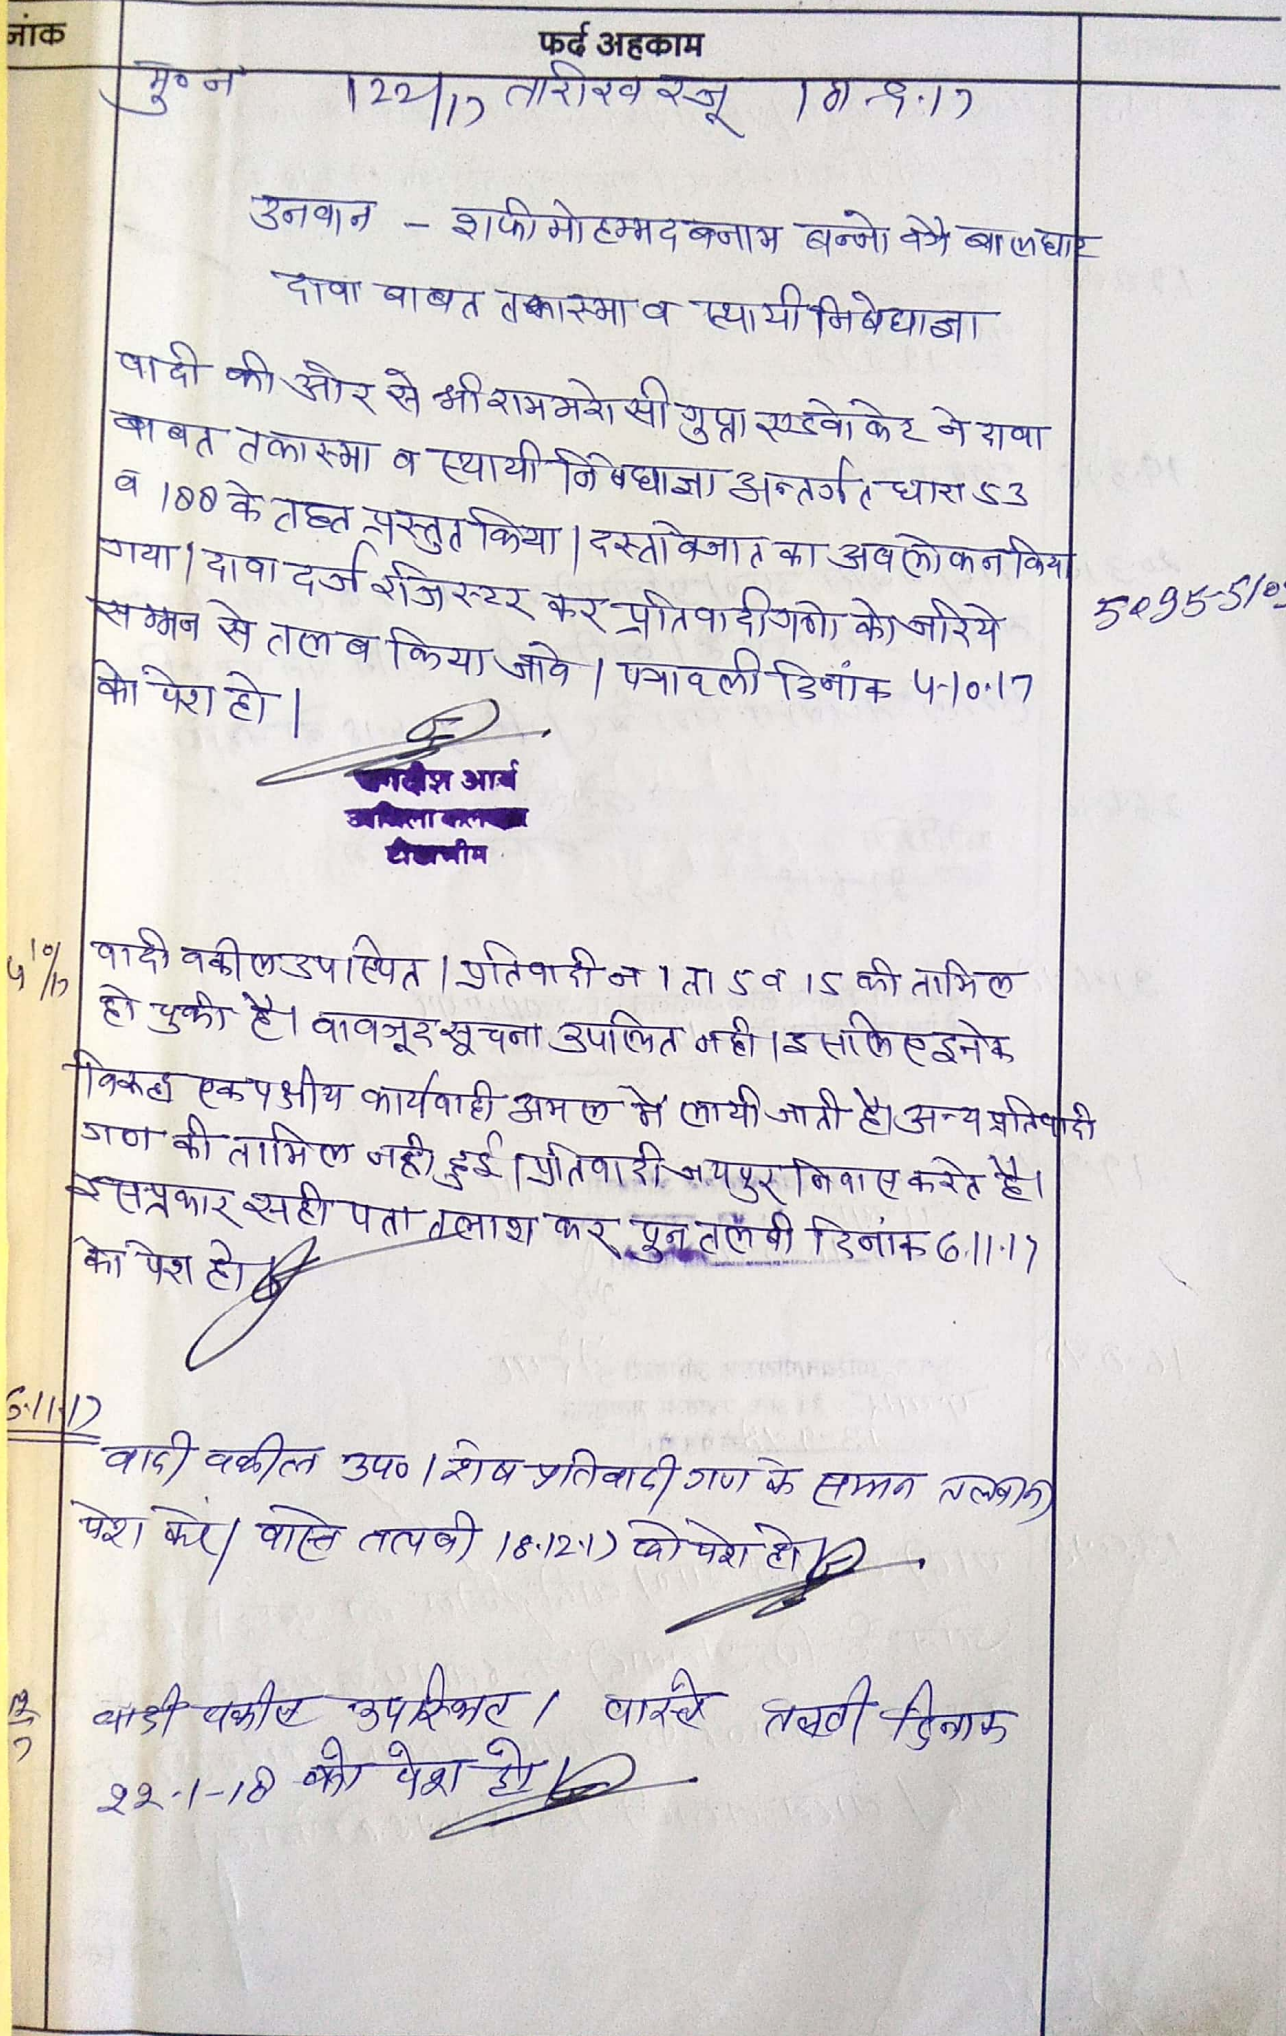 नांक
फर्द अहकाम
मु० न 122/17 तारीख रजू 18-9-17
उनवान - शफी मोहम्मद बनाम बन्नो वगै
दावा बाबत तकास्मा व स्थायी निषेधाज्ञा
वादी की ओर से श्री राम गुप्ता एडवोकेट ने दावा
बाबत तकास्मा व स्थायी निषेधाज्ञा अन्तर्गत धारा 53
व 188 के तहत प्रस्तुत किया। दस्तावेजात का अवलोकन किया
गया। दावा दर्ज रजिस्टर कर प्रतिवादीगणो को जरिये
5095-510
सम्मन से तलब किया जावे। पत्रावली दिनांक 4-10-17
को पेश हो।
जगदीश आर्य
4/10/17 वादी वकील उपस्थित। प्रतिवादी न 1 ता 5 व 15 की तामिल
हो चुकी है। वावजूद सूचना उपस्थित नही। इसलिए इनके
विरूद्ध एकपक्षीय कार्यवाही अमल मे लायी जाती है। अन्य प्रतिवादी
गण की तामिल नही हुई। प्रतिवादी जयपुर निवास करते है।
इस प्रकार सही पता तलाश कर पुन तलबी दिनांक 6.11.17
को पेश हो।
6.11.17
वादी वकील उप०। शेष प्रतिवादीगण के सम्मन तलबाना
पेश करे। वास्ते तलबी 18.12.17 को पेश हो।
वादी वकील उपस्थित। वास्ते तलबी दिनांक
22-1-18 को पेश हो।